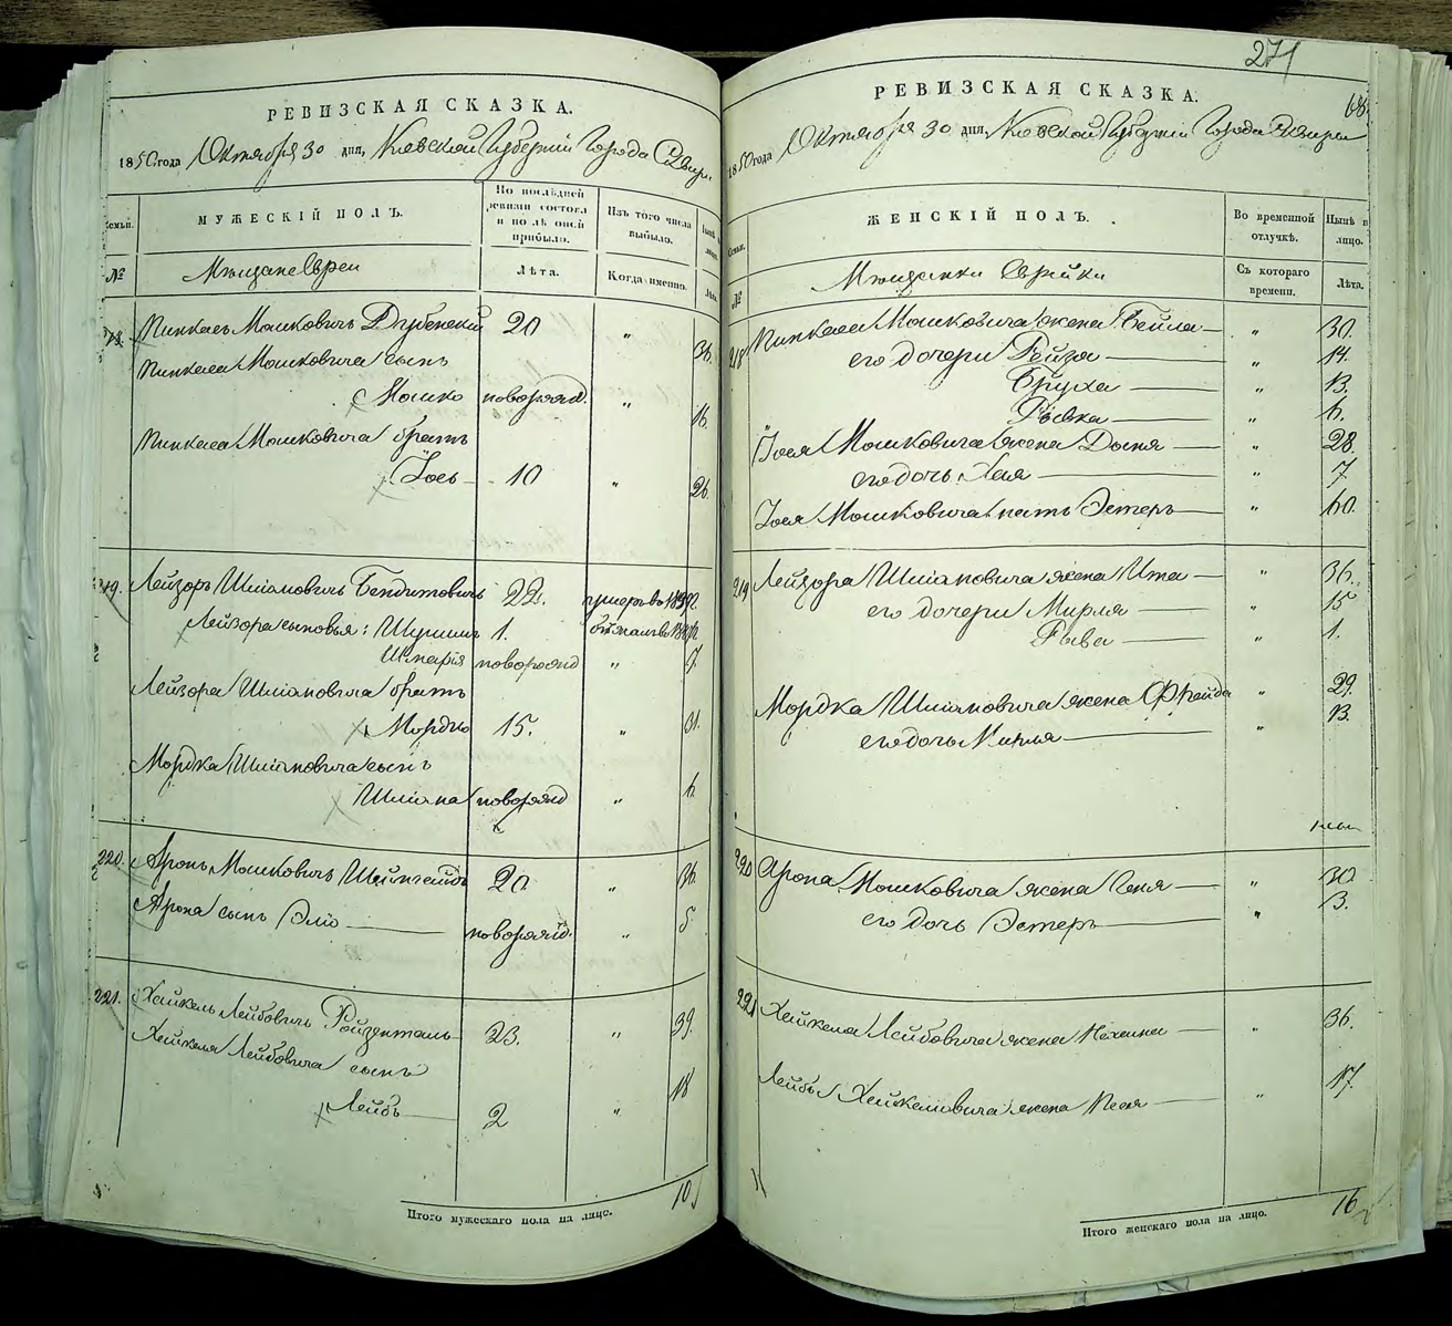 РЕВИЗСКАЯ СКАЗКА.
1850 года Октября 30 дня, Киевской Губернии Города
Семьи.
МУЖЕСКІЙ ПОЛЪ.
По послѣдней ревизіи состояло и послѣ оной прибыло.
Изъ того числа выбыло.
№
Мѣщане Евреи
Лѣта.
Когда именно.
Пинкасъ Мошковичъ Дубенскій 20 " 36.
Пинкаса Мошковича сынъ
Мошко новорожд. " 16.
Пинкаса Мошковича братъ
Іось 10 " 26.
219. Лейзоръ Шміоновичъ Бендитовичъ 22.
Лейзора сыновья: 1.
Шмарія новорожд " 7.
Лейзора Шміоновича братъ
Мордко 15. " 31.
Мордка Шміоновича сынъ
Шміона новорожд " 6.
220. Аронъ Мошковичъ 20 " 36.
Арона сынъ Эліо новорожд. " 5.
221. Хайкель Лейбовичъ Ройзенталь 23. " 39.
Хайкеля Лейбовича сынъ
Лейбъ 2 " 18
Итого мужескаго пола на лицо. 10
271
68.
РЕВИЗСКАЯ СКАЗКА.
1850 года Октября 30 дня, Киевской Губерніи Города
Семьи.
ЖЕНСКІЙ ПОЛЪ.
Во временной отлучкѣ.
Нынѣ на лицо.
№
Мѣщанки Еврейки
Съ котораго времени.
Лѣта.
218 Пинкаса Мошковича жена Бейла " 30.
его дочери Рейза " 14.
Бруха " 13.
Рывка " 6.
Іося Мошковича жена Досня " 28.
его дочь Хая " 7
Іося Мошковича мать Эстеръ " 60.
219 Лейзора Шміоновича жена Ита " 36.
его дочери Мирля " 15
Рыва " 1.
Мордка Шміоновича жена Фрейда " 29.
его дочь Мирля " 13.
220 Арона Мошковича жена Геня " 30.
его дочь Эстеръ " 3.
221 Хайкеля Лейбовича жена Нехамка " 36.
Лейбы Хайкелиовича жена Песя " 17.
Итого женскаго пола на лицо. 16